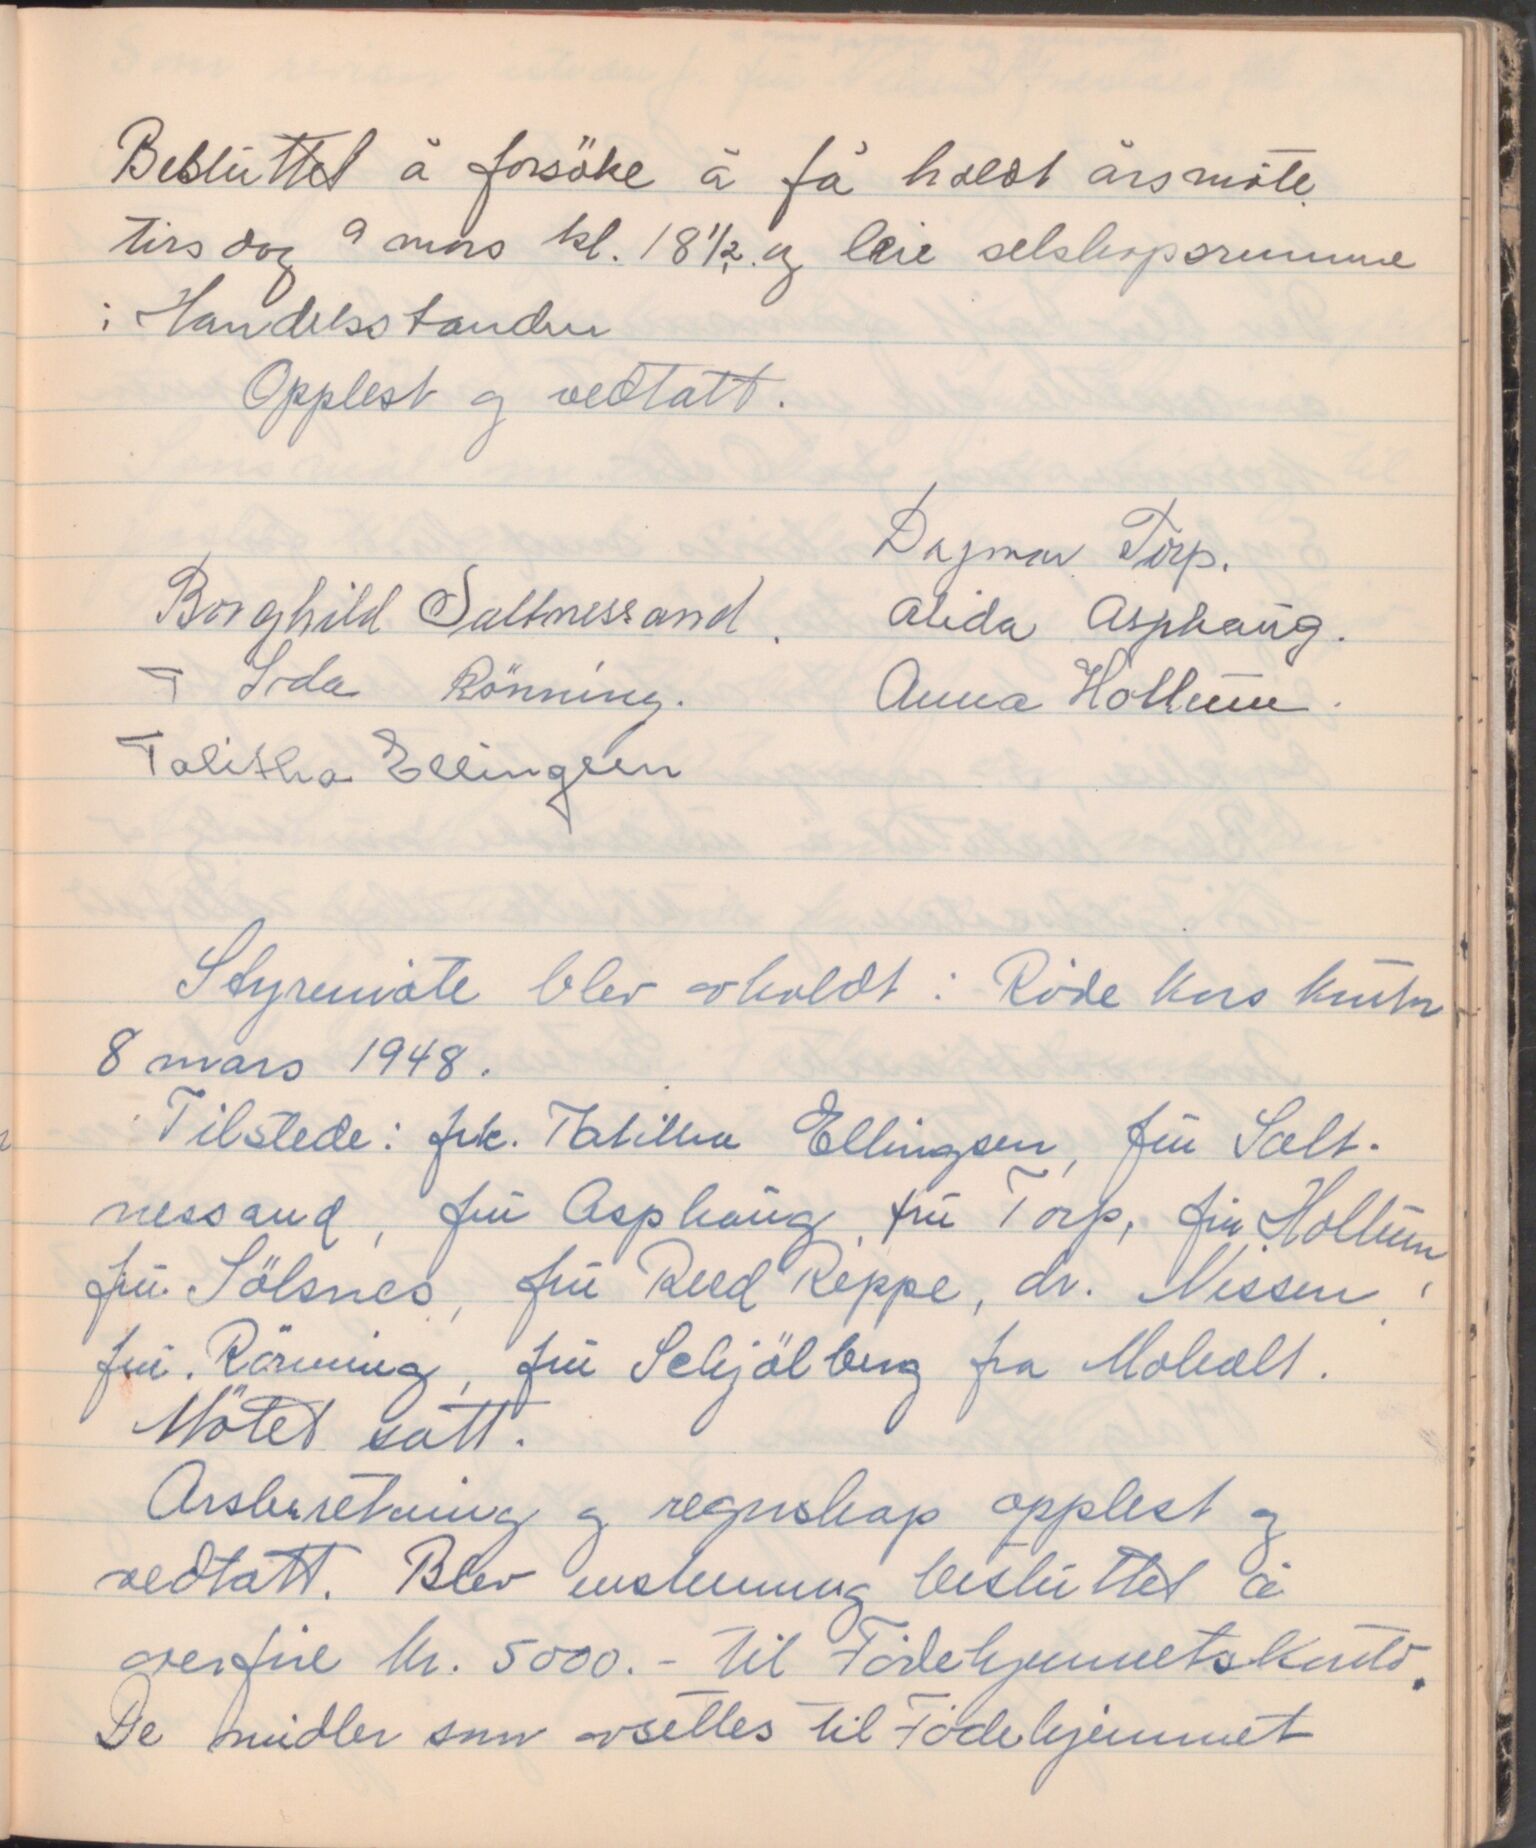 Besluttet å forsöke å få holdt årsmöte
tirsdag 9 mars kl. 18½ og leie selskapsrummene
i Handelsstanden
Opplest og vedtatt.
Dagmar Torp.
Borghild Saltnessand. Alida Asphaug.
T Ida Rönning. Anna Hollum.
Talitha Ellingsen
Styremöte blev avholdt i Röde Kors kontor
8 mars 1948.
Tilstede: frk. Talitha Ellingsen, fru Salt-
nessand, fru Asphaug, fru Torp, fru Hollum,
fru Sölsnes, fru Reppe, dr. Nissen,
fru Rönning, fru Schjölberg fra Moholt.
Mötet satt.
Årsberetning og regnskap opplest og
vedtatt. Blev enstemmig besluttet å
overföre kr. 5000.- til Födehjemmetskonto.
De midler som avsettes til Födehjemmet